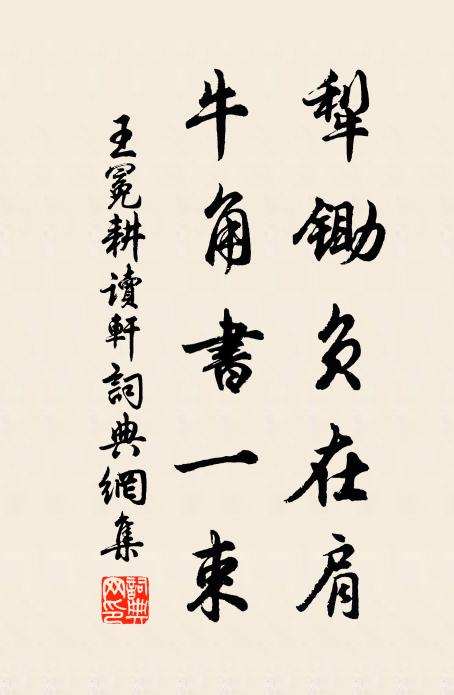 犁鋤負在肩
牛角書一束
王冕耕讀軒詞典網集
詞典网印